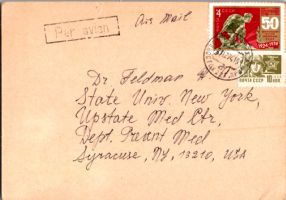 Par avion
Air Mail
50
1924-1974
Dr Feldman
State Univ. New York,
Upstate Med Ctr,
Dept. Prevent Med
Syracuse, NY, 13210, USA
ПОЧТА СССР 10 коп